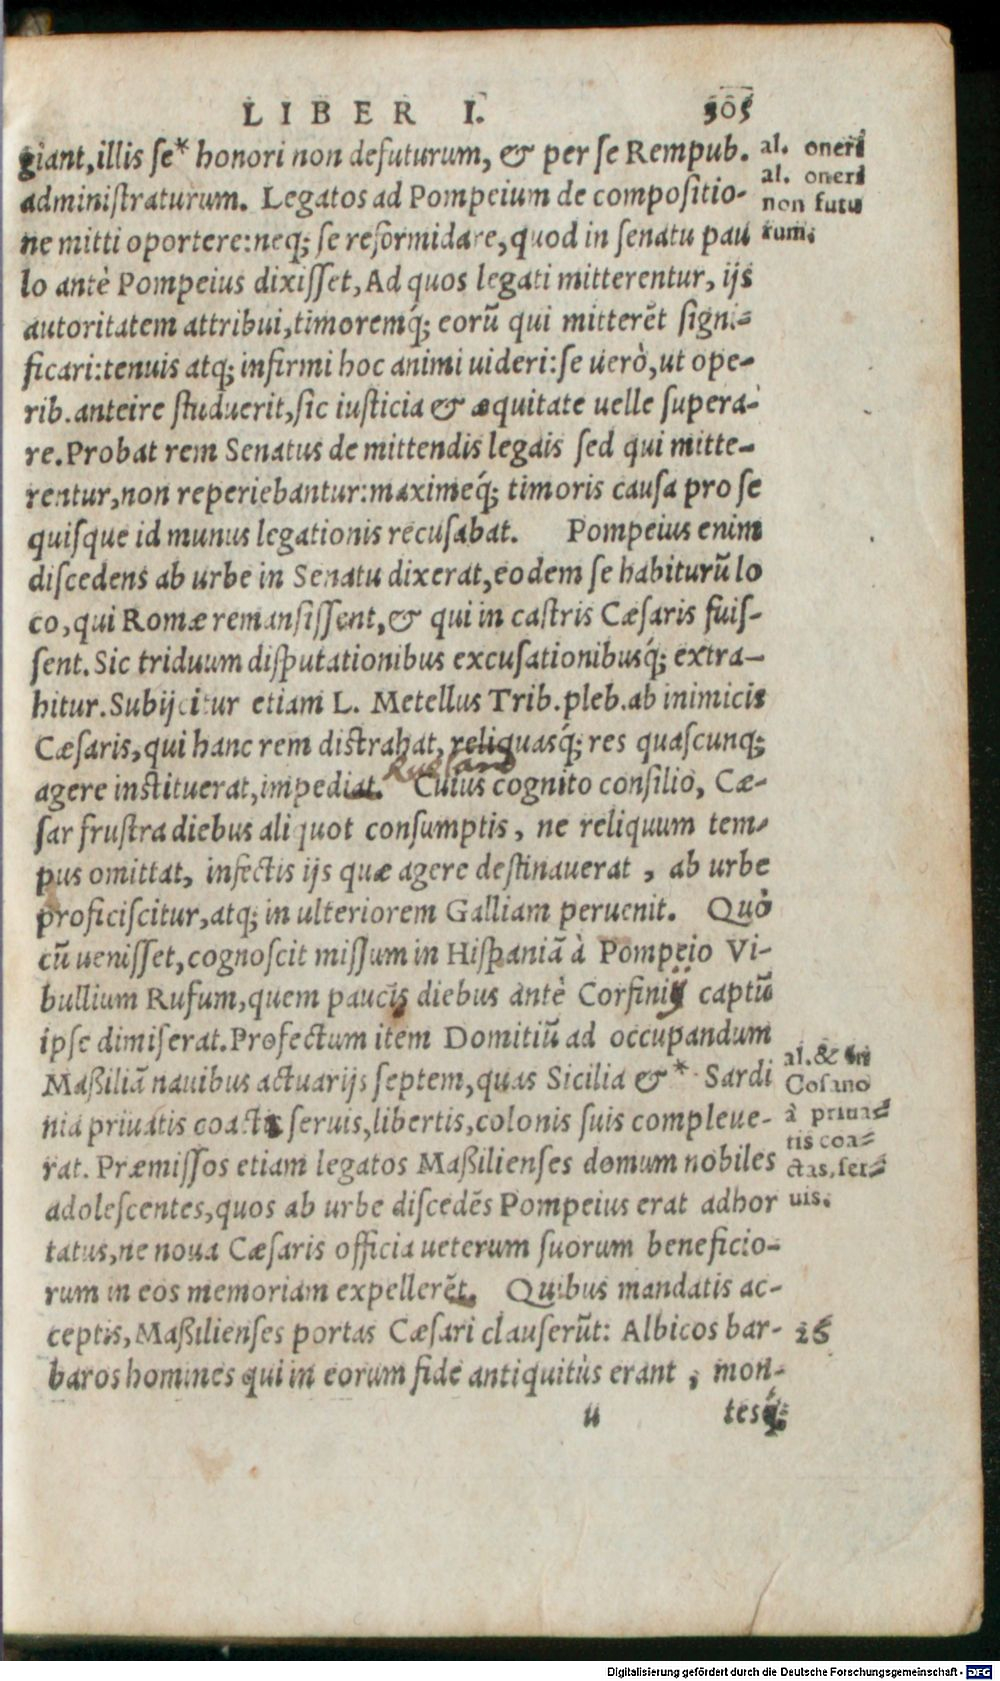 LIBER I. 305
giant, illis se* honori non defuturum, & per se Rempub.
al. oneri
administraturum. Legatos ad Pompeium de compositio-
al. oneri
non futu
ne mitti oportere: neq; se reformidare, quod in senatu pau
rum.
lo antè Pompeius dixisset, Ad quos legati mitterentur, ijs
autoritatem attribui, timoremq́; eorū qui mitterēt signi-
ficari: tenuis atq; infirmi hoc animi uideri: se uerò, ut ope-
rib. anteire studuerit, sic iusticia & æquitate uelle superà-
re. Probat rem Senatus de mittendis legais sed qui mitte-
rentur, non reperiebantur: maximeq́; timoris causa pro se
quisque id munus legationis recusabat. Pompeius enim
discedens ab urbe in Senatu dixerat, eodem se habiturū lo
co, qui Romæ remansissent, & qui in castris Cæsaris fuis-
sent. Sic triduum disputationibus excusationibusq́; extra-
hitur. Subijcitur etiam L. Metellus Trib. pleb. ab inimicis
Cæsaris, qui hanc rem distrahat, reliquasq́; res quascunq;
agere instituerat, impediat. Cuius cognito consilio, Cæ-
sar frustra diebus aliquot consumptis, ne reliquum tem-
pus omittat, infectis ijs quæ agere destinauerat, ab urbe
proficiscitur, atq; in ulteriorem Galliam peruenit. Quò
cū uenisset, cognoscit missum in Hispaniā à Pompeio Vi-
bullium Rufum, quem paucis diebus antè Corfinij captū
ipse dimiserat. Profectum item Domitiū ad occupandum
Maßiliā nauibus actuarijs septem, quas Sicilia &* Sardi
al. & in
Cosano
nia priuatis coactis seruis, libertis, colonis suis compleue-
à priua-
tis coa-
rat. Præmissos etiam legatos Maßilienses domum nobiles
ctas, ser-
adolescentes, quos ab urbe discedēs Pompeius erat adhor
uis.
tatus, ne noua Cæsaris officia ueterum suorum beneficio-
rum in eos memoriam expellerēt. Quibus mandatis ac-
ceptis, Maßilienses portas Cæsari clauserūt: Albicos bar-
26
baros homines qui in eorum fide antiquitùs erant, mon-
u tesq́;
Digitalisierung gefördert durch die Deutsche Forschungsgemeinschaft - DFG